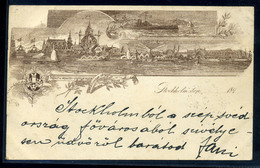 Stockholm den 189
Stockholmból a szép svéd
ország fővárosából szívélye-
sen üdvözöl barátod Jani